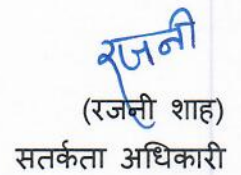 रजनी
(रजनी शाह)
सतर्कता अधिकारी